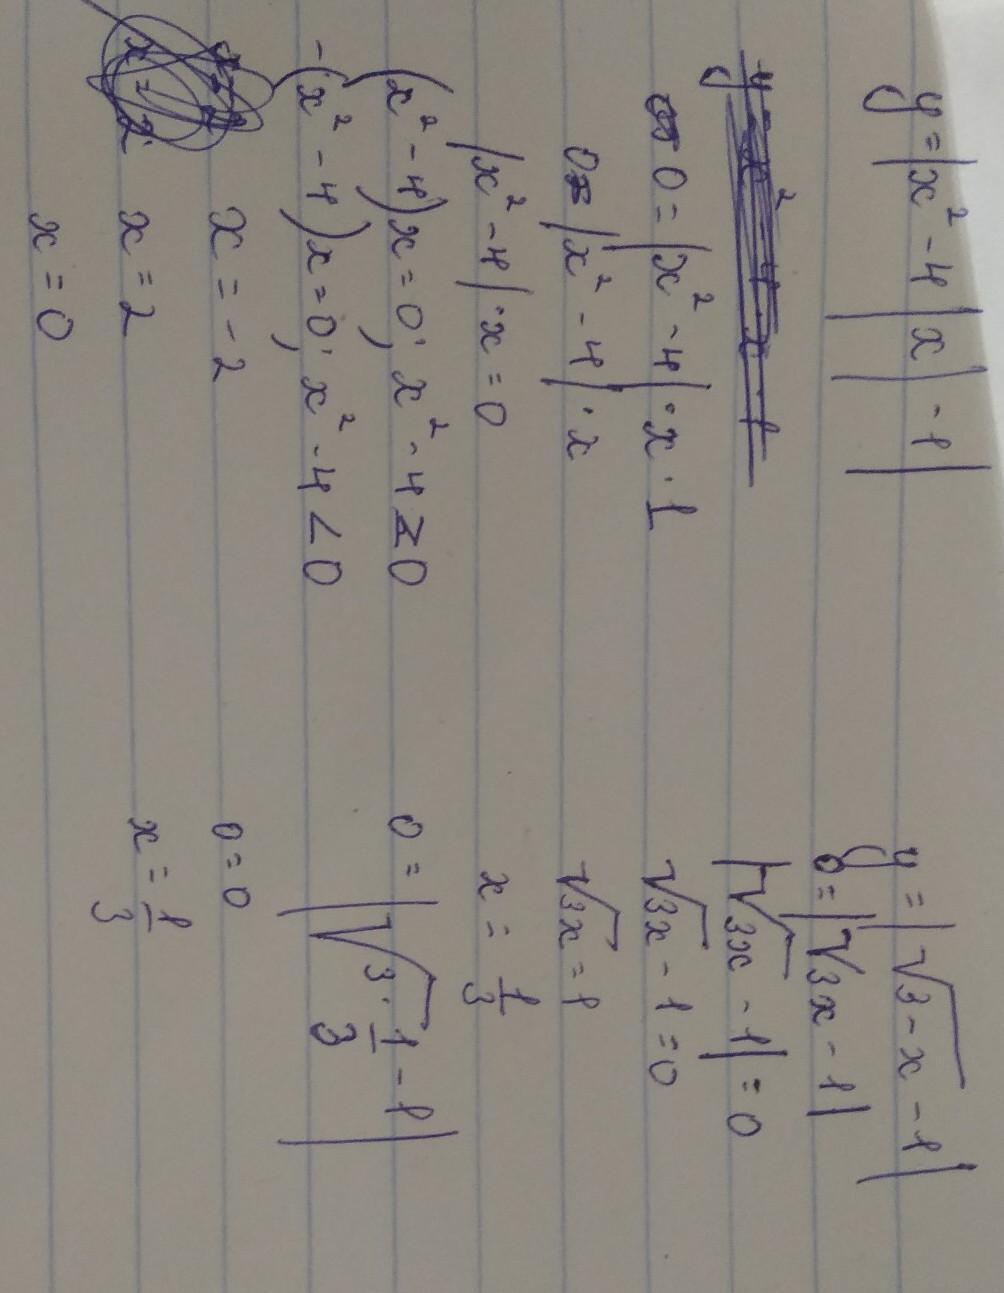 y = |x² - 4|x| - 1|
0 = |x² - 4| · x · 1
0 = |x² - 4| · x
|x² - 4| · x = 0
(x² - 4)x = 0; x² - 4 ≥ 0
-(x² - 4)x = 0; x² - 4 < 0
x = -2
x = 2
x = 0
y = |√3-x - 1|
0 = |√3x - 1|
|√3x - 1| = 0
√3x - 1 = 0
√3x = 1
x = 1/3
0 = |√3·1/3 - 1|
0 = 0
x = 1/3